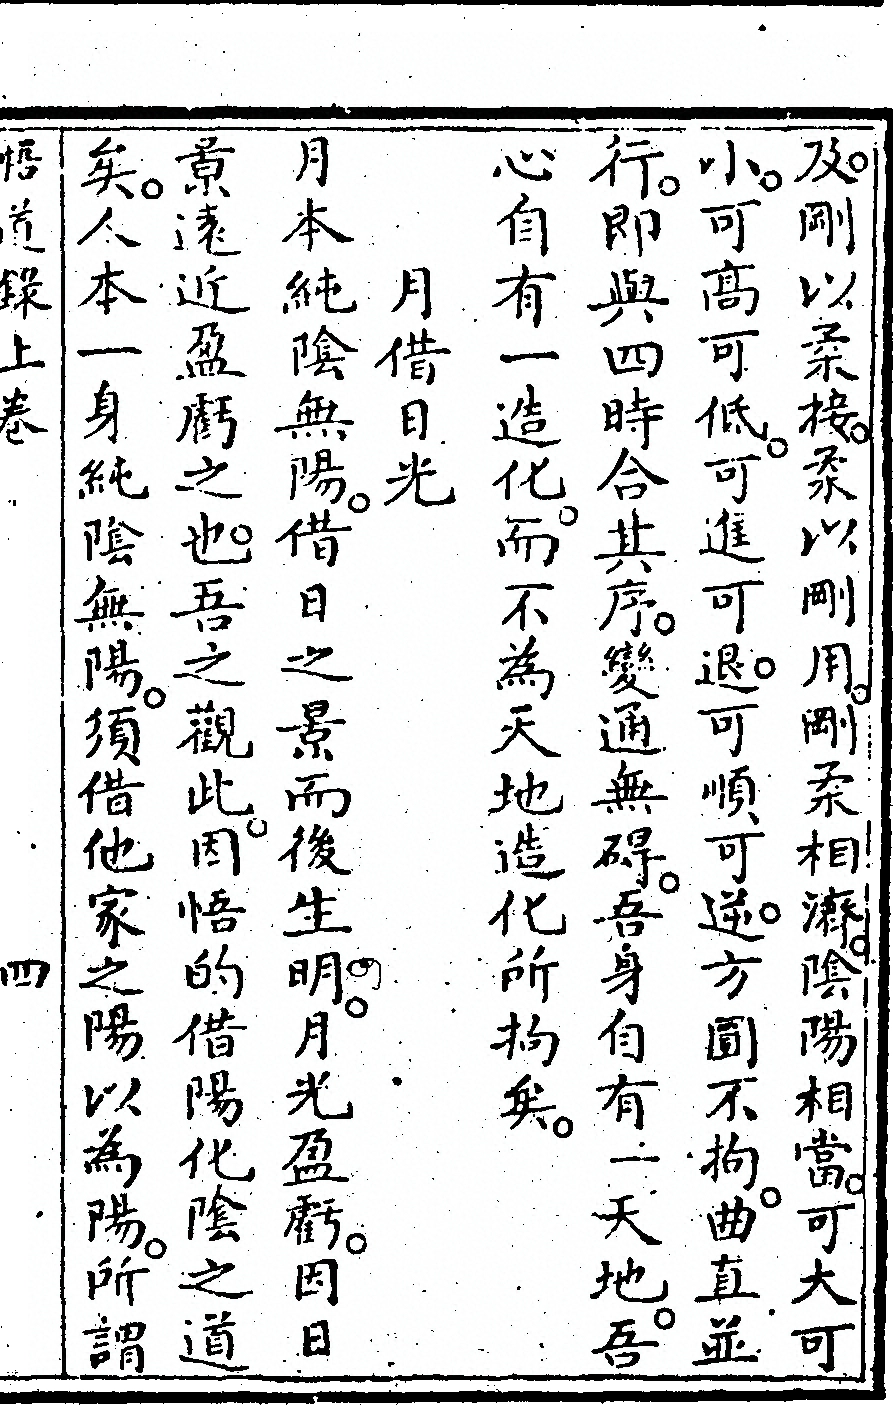 及。剛以柔接。柔以剛用。剛柔相濟。陰陽相當。可大可
小。可高可低。可進可退。可順可逆。方圓不拘。曲直並
行。即與四時合其序。變通無碍。吾身自有一天地。吾
心自有一造化。而不為天地造化所拘矣。
月借日光
月本純陰無陽。借日之景而後生明。月光盈虧。因日
景遠近盈虧之也。吾之觀此。因悟的借陽化陰之道
矣。人本一身純陰無陽。須借他家之陽以為陽。所謂
悟道錄上卷 四